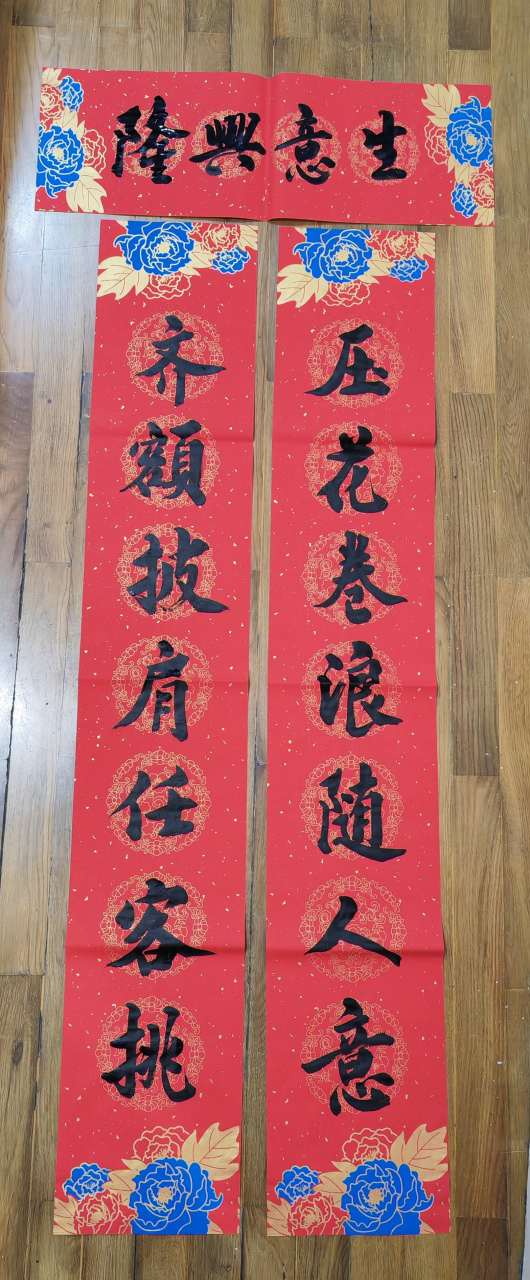 生意興隆
压花卷浪随人意
齐额披肩任客挑